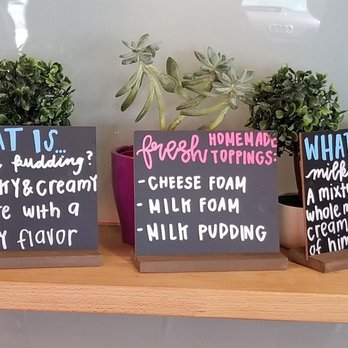 AT IS...
pudding?
KY & CREAMY
RE WITH A
Y FLAVOR
fresh HOMEMADE TOPPINGS:
- CHEESE FOAM
- MILK FOAM
- MILK PUDDING
WHAT
milk
A MIXTU
WHOLE M
CREAM
OF HIM